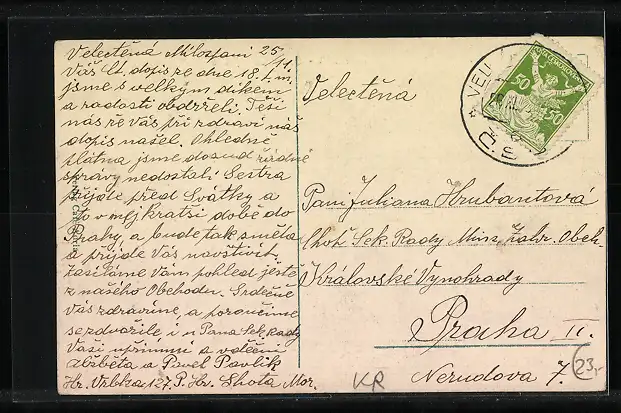 Velectěná Milospaní 25/11.
Váš Ct. dopis ze dne 18. t. m.
jsme s velkým díkem
a radostí obdrželi. Těší
nás že Vás při zdraví náš
dopis našel. Ohledně
plátna jsme dosud žádné
správy nedostali Sestra
přijde před Svátky a
to v nejkratší době do
Prahy, a bude tak směla
a přijde Vás navštívit.
Zasíláme Vám pohled ještě
z našeho Obchodu. Srdečně
Vás zdravíme, a poroučíme
se zdvořile i u Pana Sek. rady
Vaši upřímní a vděční
Alžběta a Pavel Pavlík
Hr. Vrbka 127. P. Hr. Lhota Mor.
Velectěná
Paní Juliana Hrubantová
Choť Sek. Rady Minz. Zahr. Obch.
Královské Vynohrady
Praha II.
Nerudova 7.
KR
23,-
50
50
VEL
ČS